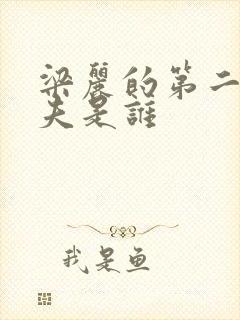 梁麗的第二
夫是誰
我是鱼